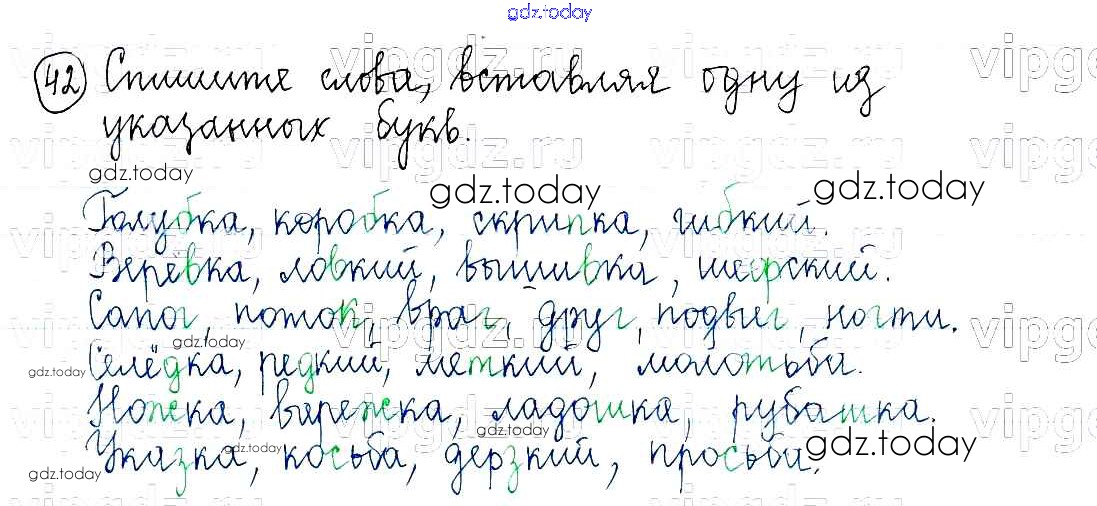 gdz.today
42 Спишите слова, вставляя одну из
указанных букв.
gdz.today
gdz.today
gdz.today
Голубка, коробка, скрипка, гибкий.
Верёвка, ловкий, вышивка, шефский.
Сапог, поток, враг, друг, подвиг, ногти.
gdz.today
gdz.today
Селёдка, редкий, меткий, молотьба.
Ножка, варежка, ладошка, рубашка.
gdz.today
gdz.today
Указка, косьба, дерзкий, просьба.
gdz.today
vipgdz.ru
vipgdz.ru
vipgdz.ru
vipgdz.ru